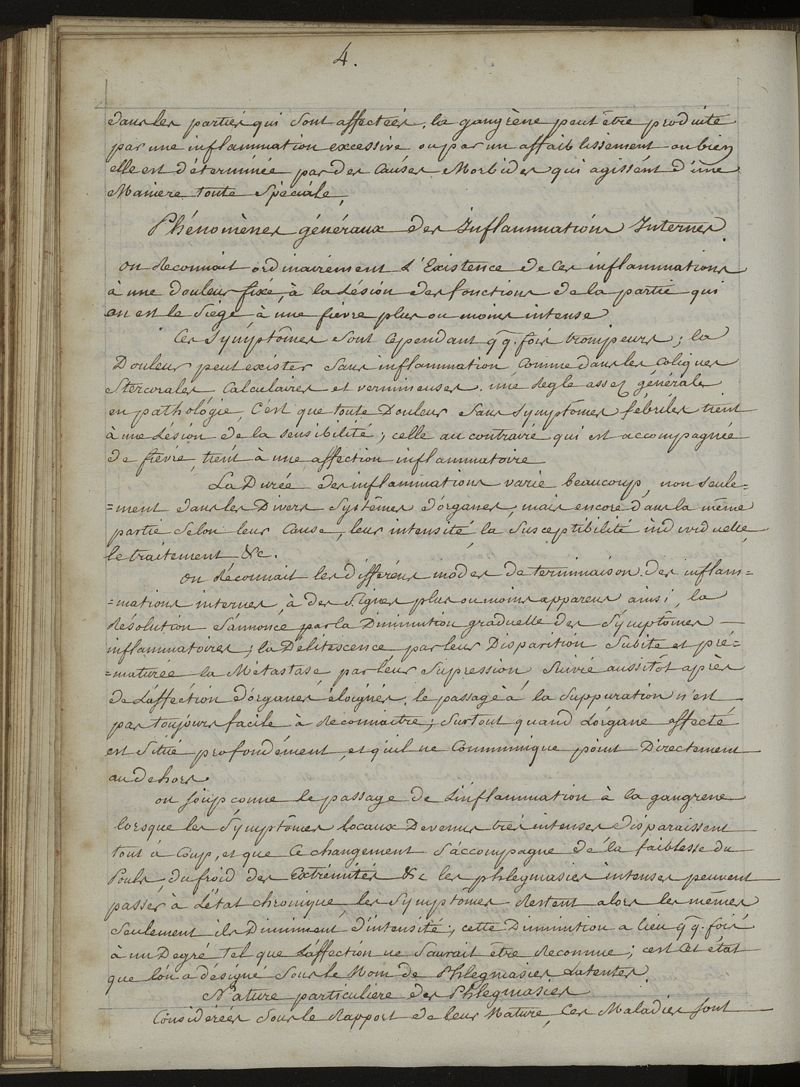 4.
dans les parties qui sont affectées. la gangrène peut être produite
par une inflammation excessive ou par un affaiblissement ou bien
elle est déterminée par des Causes Morbides qui agissent d'une
Maniere toute Spéciale,
Phénomènes généraux des Inflammations Internes.
on Reconnait ordinairement l'Existence de Ces inflammations
à une douleur fixe, à la Lésion des fonctions de la partie qui
en est le Siège à une fièvre plus ou moins intense
Ces Symptômes sont Cependant qq. fois trompeurs; la
Douleur peut exister Sans inflammation, Comme dans les Coliques
Stercorales Calculaires et vermineuses. une Regle assez générale
en pathologie, C'est que toute Douleur Sans Symptômes fébriles tient
à une Lésion de la sensibilité; celle au contraire qui est accompagnée
de fièvre, tient à une affection inflammatoire
La Durée des inflammations varie beaucoup, non seule=
=ment dans les Divers Systêmes d'organes, mais encore dans la même
partie Selon leur Cause, leur intensité, la Susceptibilité individuelle,
le traitement &c.
on Réconnait les différens modes de terminaison des inflam=
=mations internes, à des Signes plus ou moins apparens ainsi, la
Résolution S'annonce par la Diminution graduelle des Symptômes
inflammatoires; la Délitescence par leur Disparition Subite et pré=
=maturée la Métastase par leur Supression Suivie aussitôt après
de L'affection d'organes éloignés. le passage à la Suppuration n'est
pas toujours facile à Reconnaitre; Surtout quand L'organe affecté
est Situé profondément, et qu'il ne Communique point Directement
au dehors
on soupconne le passage de L'inflammation à la gangrene
lorsque les Symptômes locaux Devenus très intenses disparaissent
tout à Coup, et que Ce changement S'accompagne de la faiblesse du
Pouls, du froid des Extrémités &c les phlegmasies intenses peuvent
passer à L'état chronique, les Symptômes Restent alors les mêmes
Seulement ils Diminuent d'intensité; cette Diminution a lieu qq. fois
à un Degré tel que L'affection ne Saurait être Reconnue; c'est Cet état
que l'on a designé Sous le Nom de Phlegmasies Latentes.
Nature particulière des Phlegmasies
Considérées Sous le Rapport de leur Nature, Ces Maladies sont